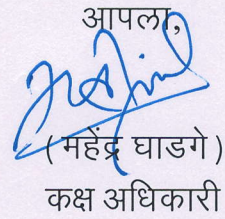 आपला,
( महेंद्र घाडगे )
कक्ष अधिकारी